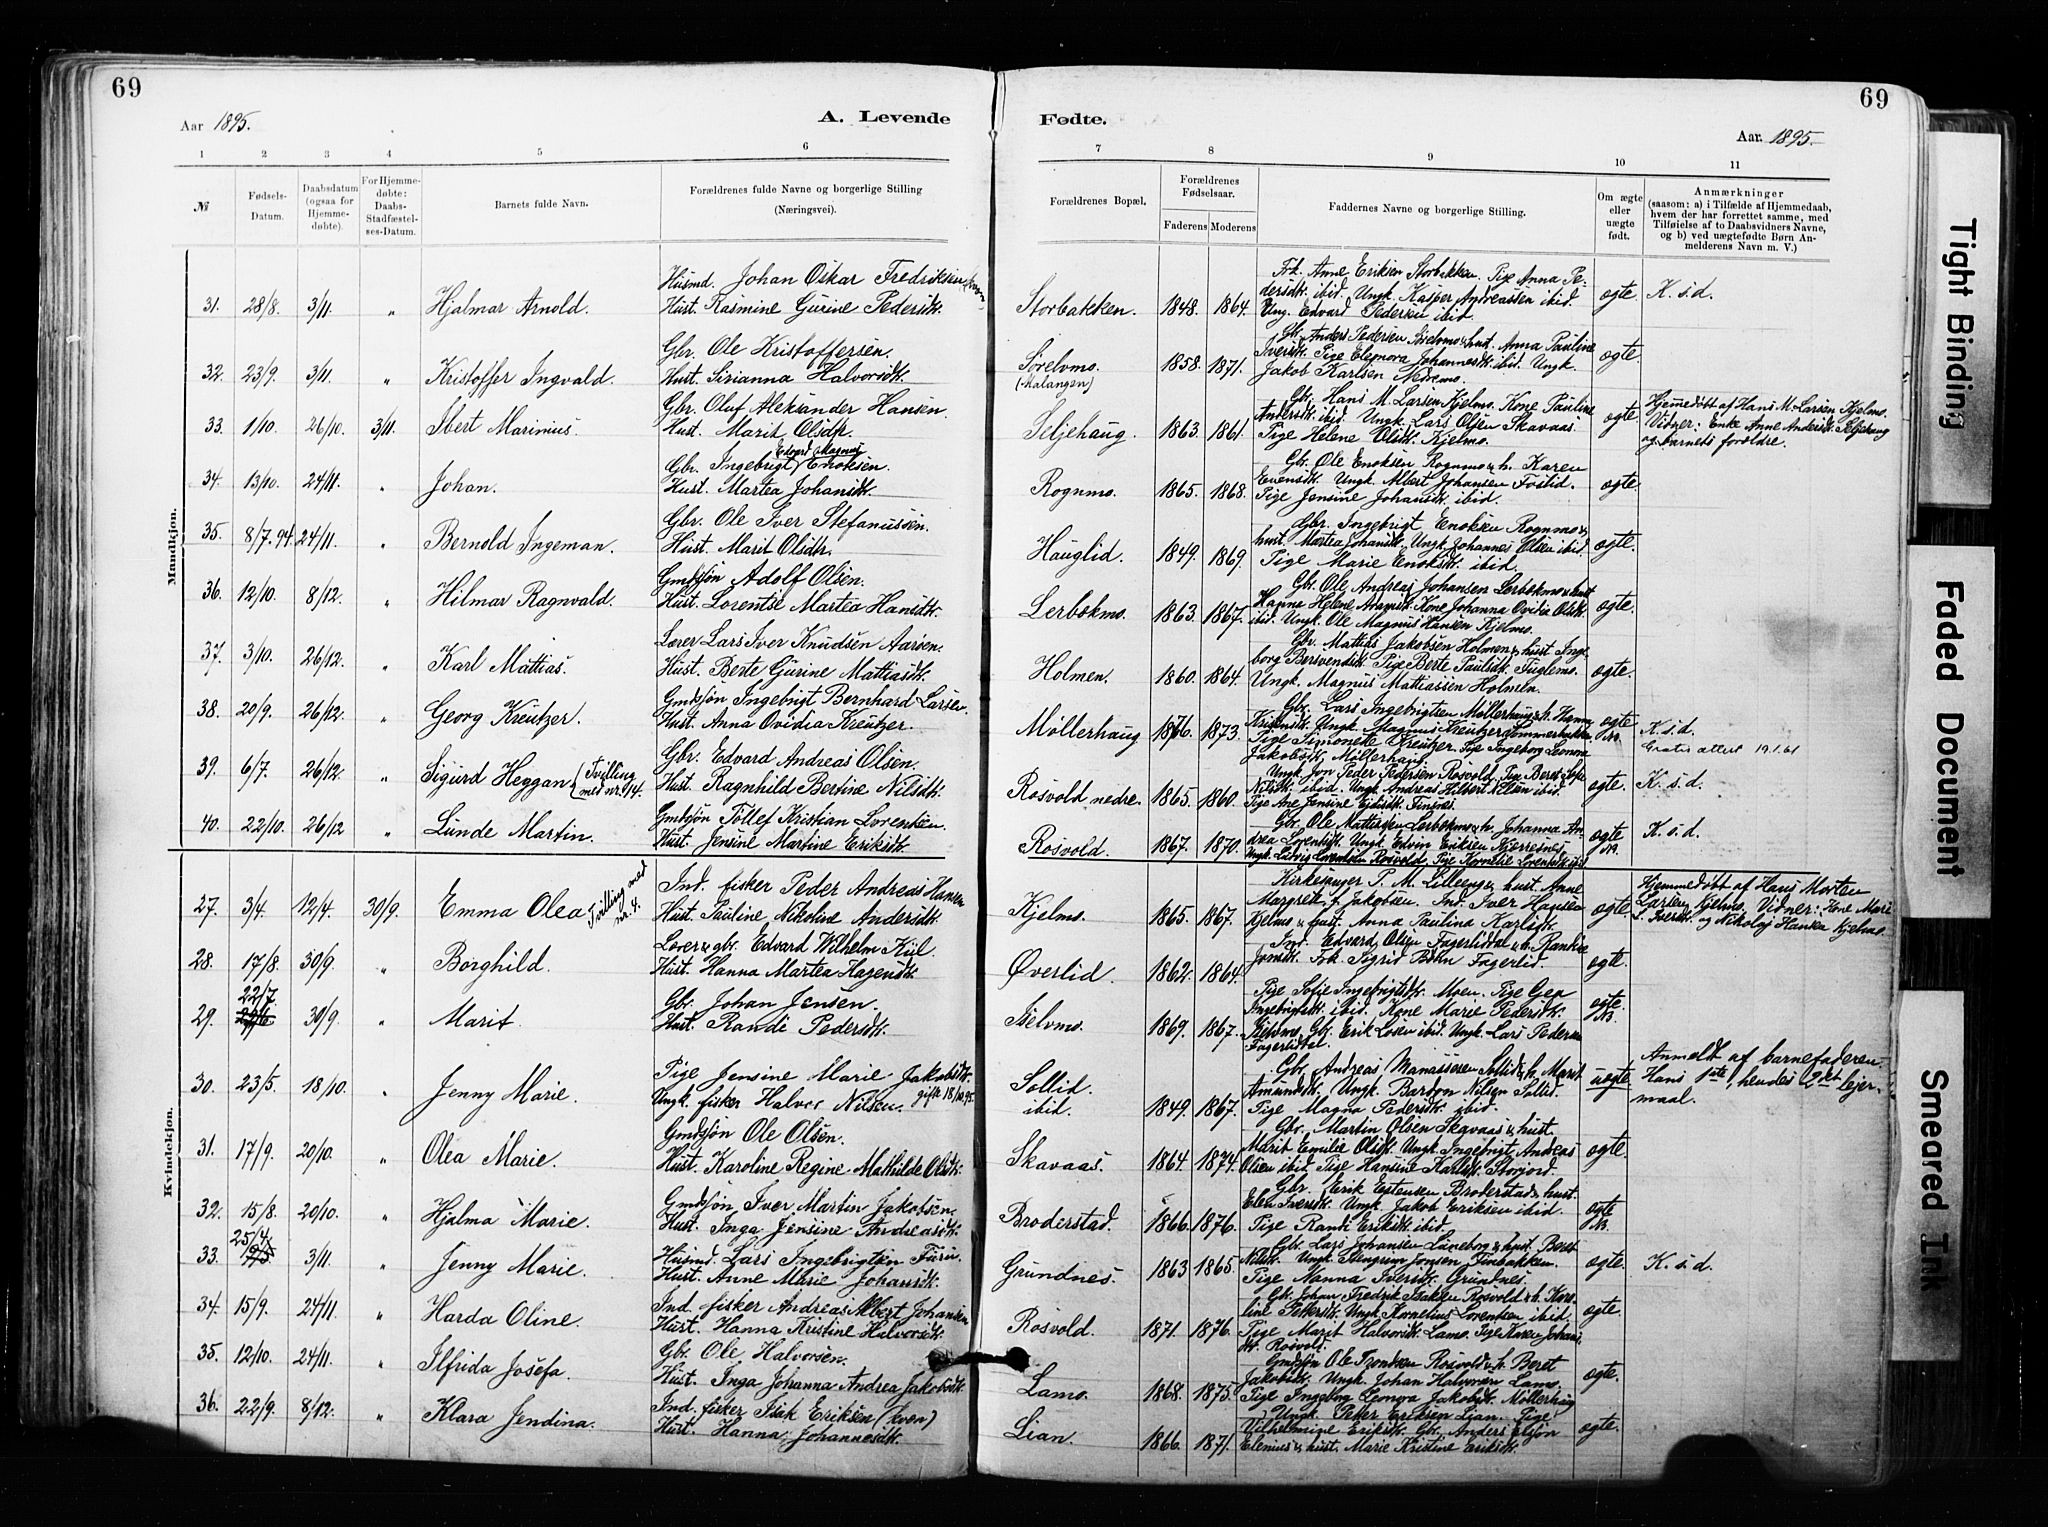 69
Aar 1895.
A. Levende
1 2 3 4 5 6
№
Fødsels-Datum.
Daabsdatum (ogsaa for Hjemme-døbte).
For Hjemme-døbte: Daabs-Stadfæstel-ses-Datum.
Barnets fulde Navn.
Forældrenes fulde Navne og borgerlige Stilling (Næringsvei).
Mandkjøn.
31. 28/8. 3/11. " Hjalmar Arnold. Husmd. Johan Oskar Fredriksen
Hust. Rasmine Gurine Pedersdt.
32. 23/9. 3/11. " Kristoffer Ingvald. Gbr. Ole Kristoffersen.
Hust. Sirianna Halvorsdt.
33. 1/10. 26/10. 3/11. Ibert Marinius. Gbr. Oluf Aleksander Hansen.
Hust. Marit Olsdtr.
34. 13/10. 24/11. " Johan. Gbr. Ingebrigt Edvard Magnus Enoksen.
Hust. Martea Johansdt.
35. 8/7.94. 24/11. " Bernold Ingeman. Gbr. Ole Iver Stefanussen.
Hust. Marit Olsdtr.
36. 12/10. 8/12. " Hilmar Ragnvald. Gmdsjøn Adolf Olsen.
Hust. Lorentse Martea Hansdt.
37. 3/10. 26/12. " Karl Mattias. Lærer Lars Iver Knudsen Aarsen.
Hust. Berte Gurine Mattiasdt.
38. 20/9. 26/12. " Georg Kreutzer. Gmdsjøn Ingebrigt Bernhard Larsen
Hust. Anna Ovidia Kreutzer.
39. 6/7. 26/12. " Sigurd Heggan (Tvilling med nr. 14. Gbr. Edvard Andreas Olsen.
Hust. Ragnhild Bertine Nilsdt.
40. 22/10. 26/12 " Lunde Martin. Gmdsjøn Tollef Kristian Lorentsen.
Hust. Jensine Martine Eriksdt.
Kvindekjøn.
27. 3/4. 12/4. 30/9. Emma Olea Tvilling med nr. 4. Ind. fisker Peder Andreas Hansen
Hust. Pauline Nikoline Andersdt.
28. 17/8. 30/9. " Borghild. Lærer & gbr. Edvard Wilhelm Kiil
Hust. Hanna Martea Hagensdt.
29. 22/7. 30/9. " Marit. Gbr. Johan Jensen.
Hust. Randi Pedersdt.
30. 23/5. 18/10. " Jenny Marie. Pige Jensine Marie Jakobsdt.
Ungk. fisker Halvor Nilsen. gift 18/10.95.
31. 17/9. 20/10. " Olea Marie. Gmdsjøn Ole Olsen.
Hust. Karoline Regine Mathilde Olsdt.
32. 15/8. 20/10. " Hjalma Marie. Gmdsjøn Iver Martin Jakobsen.
Hust. Inga Jensine Andreasdt.
33. 25/4. 3/11. " Jenny Marie. Husmd. Lars Ingebrigtsen Furu.
Hust. Anne Marie Johansdt.
34. 15/9. 24/11. " Harda Oline. Ind. fisker Andreas Albert Johansen
Hust. Hanna Kristine Halvorsdt.
35. 12/10. 24/11. " Ilfrida Josefa. Gbr. Ole Halvorsen.
Hust. Inga Johanna Andrea Jakobsdt.
36. 22/9. 8/12. " Klara Jendina. Ind. fisker Isak Eriksen (kven)
Hust. Hanna Johannesdt.
69
Fødte.
Aar. 1895.
7 8 9 10 11
Forældrenes Bopæl.
Forældrenes Fødselsaar.
Faderens Moderens
Faddernes Navne og borgerlige Stilling.
Om ægte eller uægte født.
Anmærkninger
(saasom: a) i Tilfælde af Hjemmedaab, hvem der har forrettet samme, med Tilføielse af to Daabsvidners Navne, og b) ved uægtefødte Børn Anmelderens Navn m. V.)
Storbakken. 1848. 1864. Frk. Anne Eriksen Storbakken. Pige Anna Pedersdt. ibid. Ungk. Kasper Andreassen ibid. Ung. Edvard Pedersen ibid. ægte. K. s. d.
Sørelvmo. (Malangen) 1858. 1871. Gbr. Anders Pedersen & hust. Anna Pauline Iversdt. Pige Eleonora Johannesdt. ibid. Ungk. Jakob Karlsen Nedremo. ægte.
Seljehaug. 1863. 1861. Gbr. Hans M. Larsen Kjelmo. Kone Pauline Andersdt. ibid. Ungk. Lars Olsen Skavaas. Pige Helene Olsdt. Kjelmo. ægte. Hjemmedøbt af Hans M. Larsen Kjelmo. Vidner: Enke Anne Andersdt. Seljehaug og barnets forældre.
Rognmo. 1865. 1868. Gbr. Ole Enoksen Rognmo & h. Karen Evensdt. Ungk. Albert Johansen Foslid. Pige Jensine Johansdt. ibid. ægte.
Hauglid. 1849. 1869. Gbr. Ingebrigt Enoksen Rognmo & hust. Martea Johansdt. Ungk. Johannes Olsen ibid. Pige Marie Enoksdt. ibid. ægte.
Lerbekmo. 1863. 1867. Gbr. Ole Andreas Johansen Lerbekmo & hust Hanna Helene Kone Johanna Ovidia Olsdt. ibid. Ungk. Ole Magnus Hansen Kjelmo. ægte.
Holmen. 1860. 1864. Gbr. Mattias Jakobsen Holmen & hust Ingborg Bersvendsdt. Pige Berte Paulsdt. Fuglemo. Ungk. Magnus Mattiassen Holmen. ægte.
Møllerhaug 1876. 1873. Gbr. Lars Ingebrigtsen Møllerhaug & h. Hanna Ungk. Magnus Kreutzer Sommerbakken Pige Simonette Kreutzer. Pige Ingeborg Leonora Jakobsdt. Møllerhaug. ægte K.s.d. Gratis attest 19.1.61
Rosvold nedre. 1865. 1860. Ungk. Jon Peder Pedersen Rosvold. Pige Beret Nilsdt. ibid. Ungk. Andreas Hilbert Nilsen ibid. Pige Ane Jensine Finnes. ægte. K. s. d.
Rosvold. 1867. 1870. Gbr. Ole Mattissen Lerbekmo & h. Johanna Andrea Lorentsdt. Ungk. Edvin Eriksen Kjerresnes. Ungk. Ludvig Lorentsen Rosvold. Pige Kornelie Lorentsdt. ibid. ægte K. s. d.
Kjelmo. 1865. 1867. Kirkesanger P. M. Lilleeng & hust. Anne Margrete f. Jakobsen. Ind. Iver Hansen Kjelmo & hust. Anna Paulina Karlsdt. ægte. Hjemmedøbt af Hans Morten Larsen Kjelmo. Vidner: Kone Marie Iversdt. og Nikolai Hansen Kjelmo.
Øverlid. 1862. 1864. Ind. Edvard Olsen Fagerlidtal & h. Jonsdt. Frk. Sigrid Bohn Fagerlid. ægte.
1869. 1867. Pige Sofie Ingebrigtsdt. Moen. Pige Gea Ingebrigtsdt. ibid. Kone Marie Pedersdt. Gbr. Erik Losen ibid. Ungk. Lars Pedersen Fagerlidtal. ægte. NB.
Sollid. ibid. 1849. 1867. Gbr. Andreas Manassesen Sollid & h. Marit Amundsdt. Ungk. Bardon Nilsen Sollid. Pige Magna Pedersdt. ibid. uægte. Anmeldt af barnefaderen. Hans 1ste, hendes 2det leiermaal.
Skavaas. 1864. 1874. Gbr. Martin Olsen Skavaas & hust. Marit Emilie Olsdt. Ungk. Ingebrigt Andreas Olsen ibid. Pige Hansine Karlsdt. Storjord. ægte.
Broderstad. 1866. 1876. Gbr. Erik Estensen Broderstad & hust. Elen Iversdt. Ungk. Jakob Eriksen ibid. Pige Randi Eriksdt. ibid. ægte NB.
Grundnes. 1863 1865. Gbr. Lars Johansen Luneborg & hust. Beret Nilsdt. Ungk. Stengrim Jonsen Finbakken. Pige Nanna Iversdt. Grundnes. ægte. K. s. d.
Rosvold. 1871. 1876. Gbr. Johan Fredrik Isaksen Rosvold & h. Karoline Pettersdt. Ungk. Kornelius Lorentsen ibid. Pige Marit Halvorsdt. Lamo. Pige Karen Johansdt. Rosvold. ægte.
Lamo. 1868. 1875. Gmdsjøn Ole Trondsen Rosvold & h. Beret Jakobsdt. Ungk. Johan Halvorsen Lamo. Pige Ingeborg Leonora Jakobsdt. Møllerhaug ægte.
Lian. 1866. 1871. Ungk. Peter Eriksen Lian. Pige Vilhelmine Eriksdt. Gbr. Anders Elenius & hust. Marie Kristine Eriksdt. ægte.
Tight Binding
Faded Document
Smeared Ink